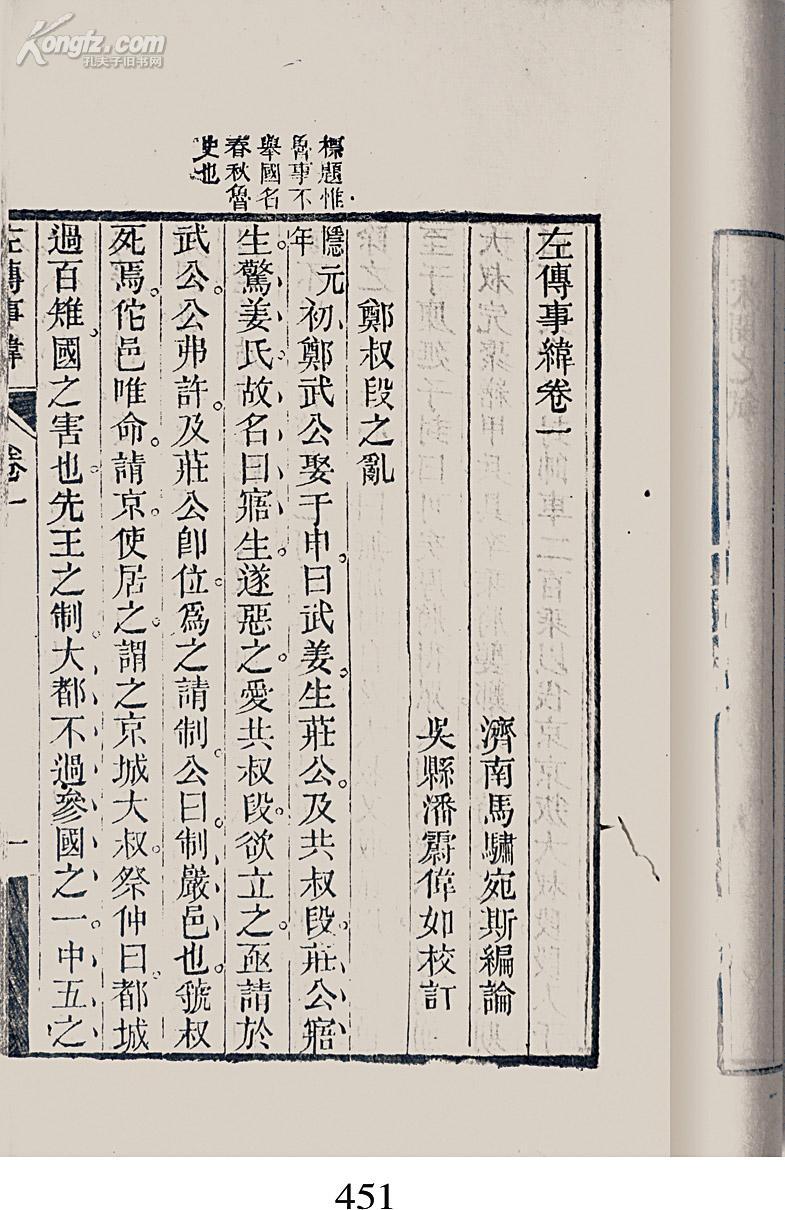 Kongfz.com
孔夫子旧书网
標題惟
魯事不
舉國名
春秋魯
史也
左傳事緯卷一
濟南馬驌宛斯編論
吳縣潘霨偉如校訂
鄭叔段之亂
隱元年 初鄭武公娶于申曰武姜生莊公及共叔段莊公寤
生驚姜氏故名曰寤生遂惡之愛共叔段欲立之亟請於
武公公弗許及莊公卽位爲之請制公曰制嚴邑也虢叔
死焉佗邑唯命請京使居之謂之京城大叔祭仲曰都城
過百雉國之害也先王之制大都不過參國之一中五之
左傳事緯
卷一
一
451